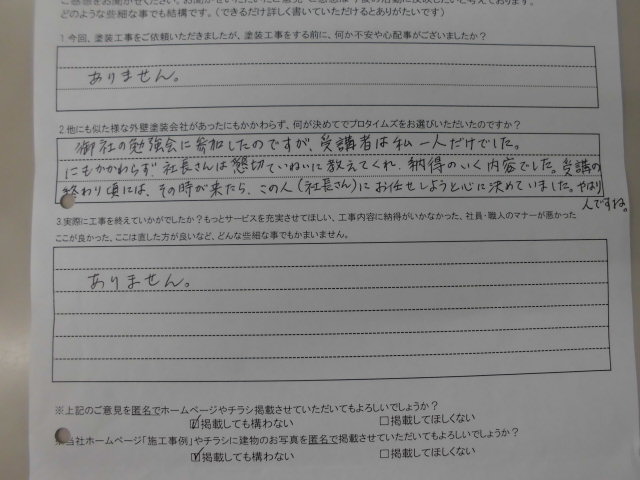 ご感想をお聞かせください。お聞かせいただいたご意見・ご感想は今後の活動に反映したいと考えております。
どのような些細な事でも結構です。(できるだけ詳しく書いていただけるとありがたいです)
1.今回、塗装工事をご依頼いただきましたが、塗装工事をする前に、何か不安や心配事がございましたか?
ありません。
2.他にも似た様な外壁塗装会社があったにもかかわらず、何が決めてでプロタイムズをお選びいただいたのですか?
御社の勉強会に参加したのですが、受講者は私一人だけでした。
にもかかわらず社長さんは懇切ていねいに教えてくれ、納得のいく内容でした。受講の
終わり頃には、その時が来たら、この人(社長さん)にお任せしようと心に決めていました。やはり
人ですね。
3.実際に工事を終えていかがでしたか?もっとサービスを充実させてほしい、工事内容に納得がいかなかった、社員・職人のマナーが悪かった
ここが良かった、ここは直した方が良いなど、どんな些細な事でもかまいません。
ありません。
※上記のご意見を匿名でホームページやチラシ掲載させていただいてもよろしいでしょうか?
☑掲載しても構わない □掲載してほしくない
※当社ホームページ「施工事例」やチラシに建物のお写真を匿名で掲載させていただいてもよろしいでしょうか?
☑掲載しても構わない □掲載してほしくない